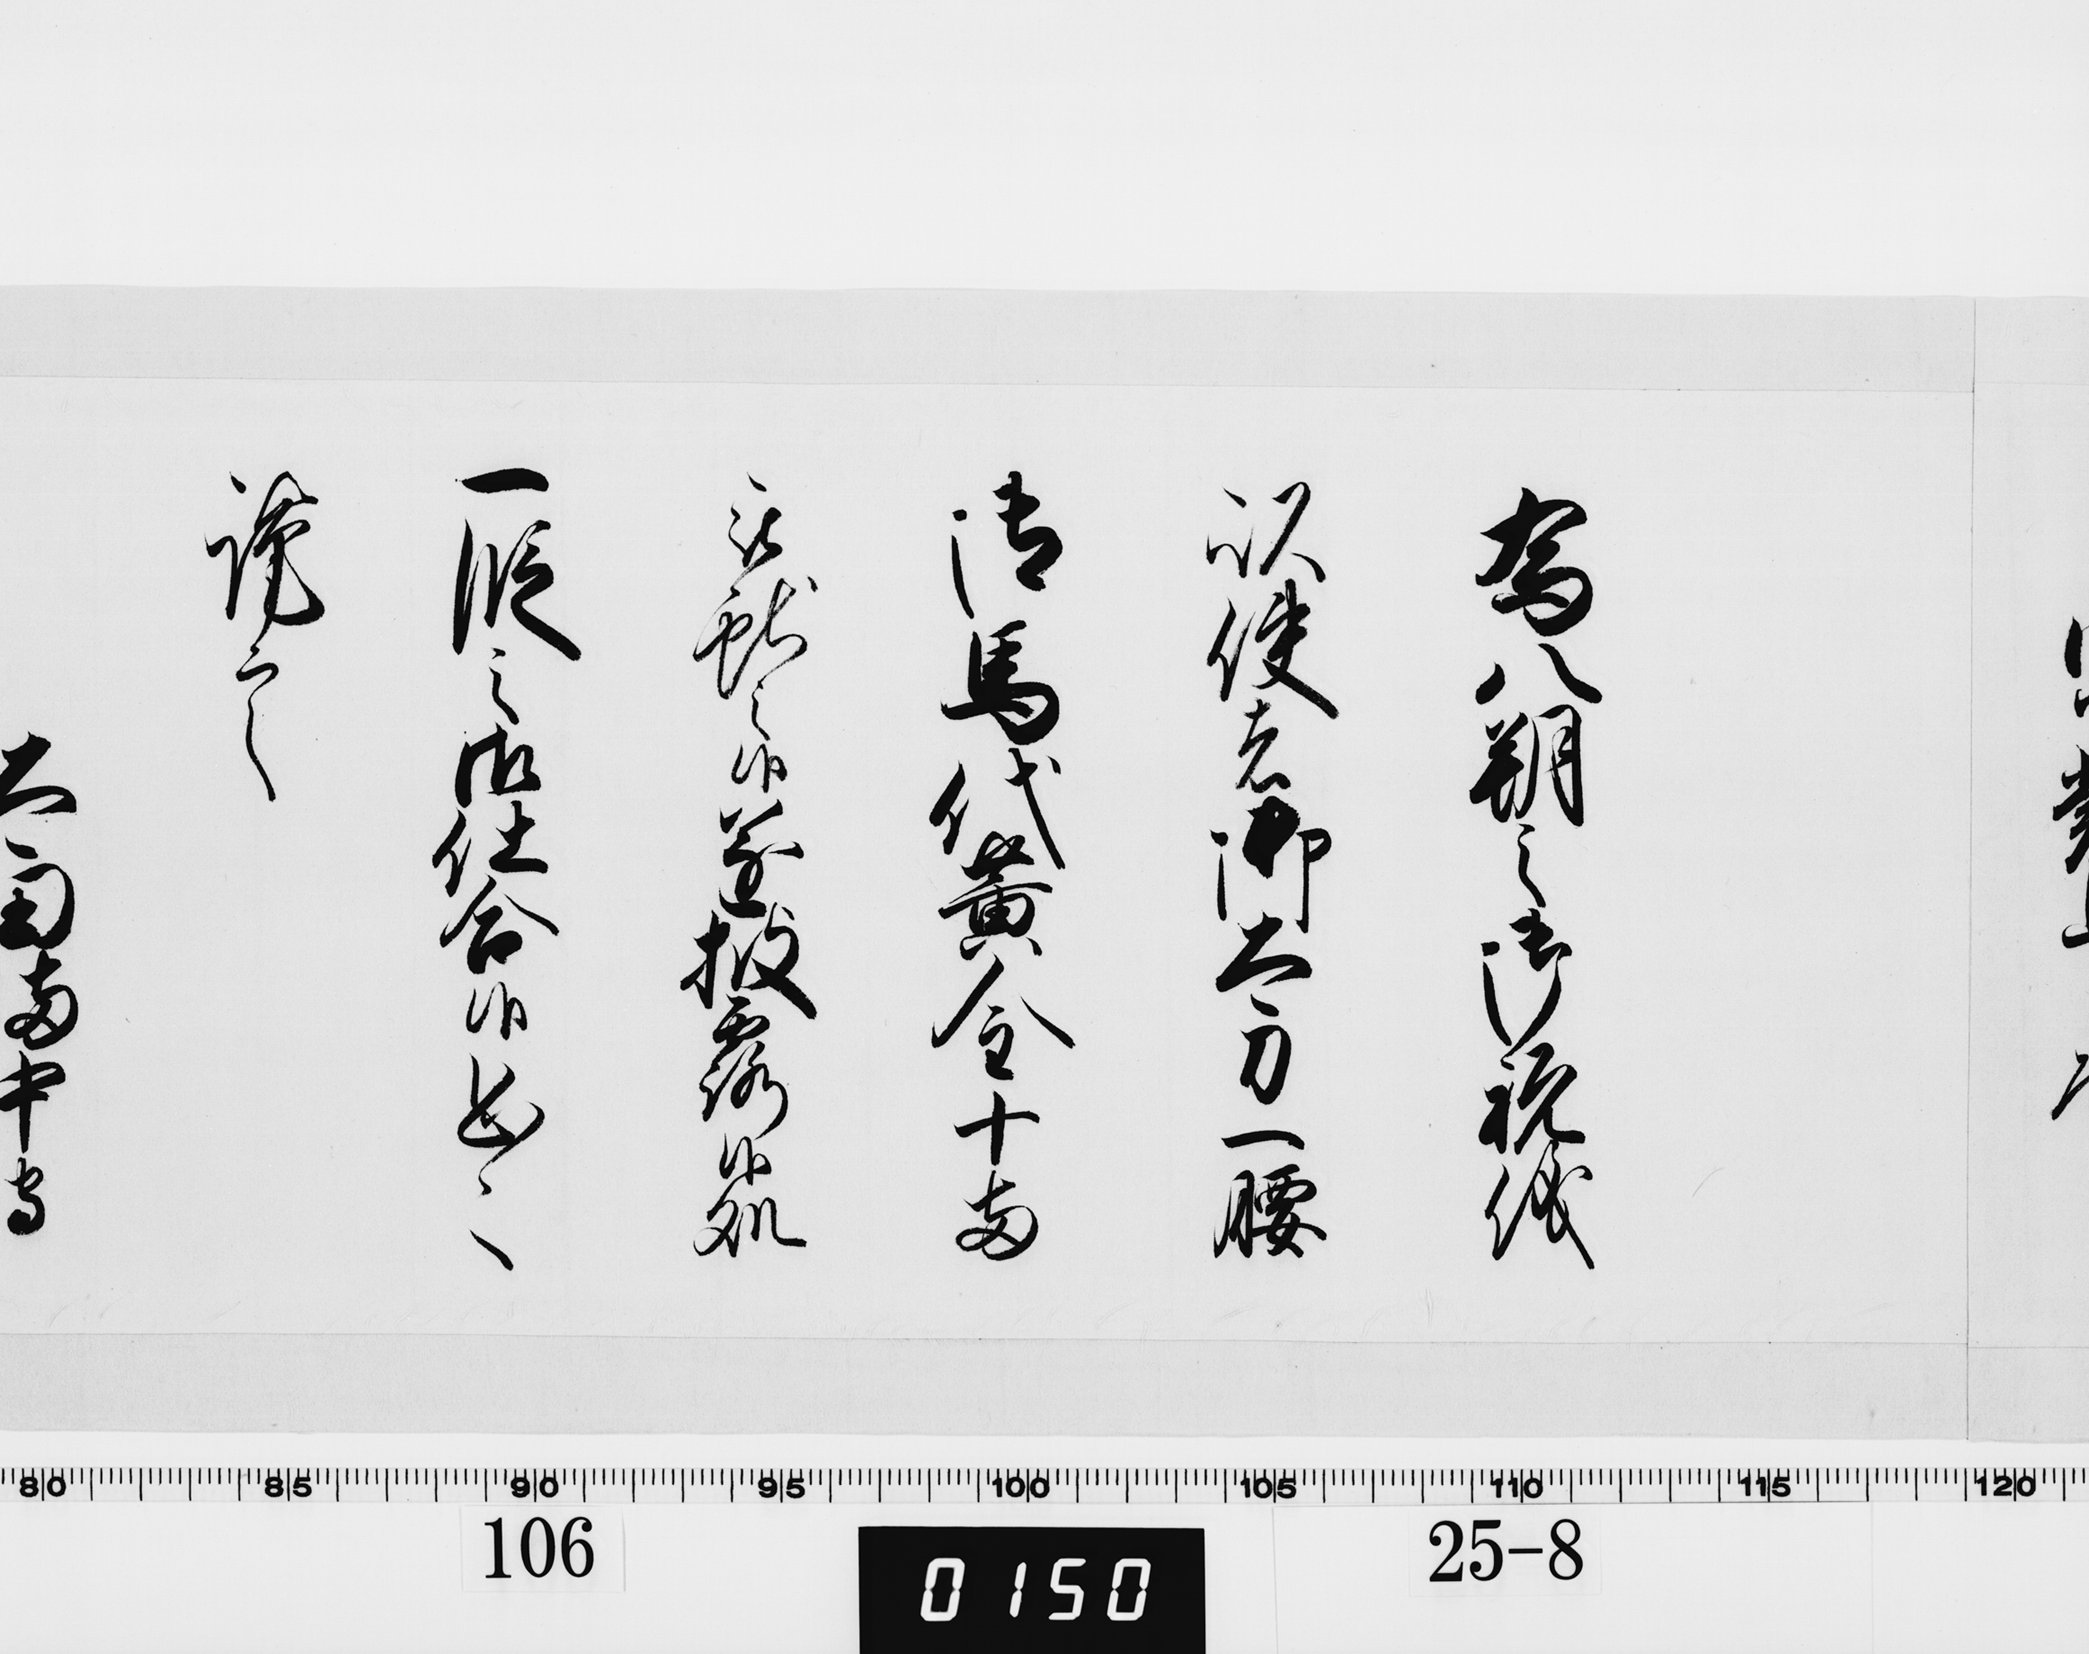 為八朔之御祝儀
以使者御太刀一腰
御馬代黄金十両
被献之候遂披露候処
一段之御仕合候恐々
謹言
80 85 90 95 100 105 110 115 120
106
0150
25-8